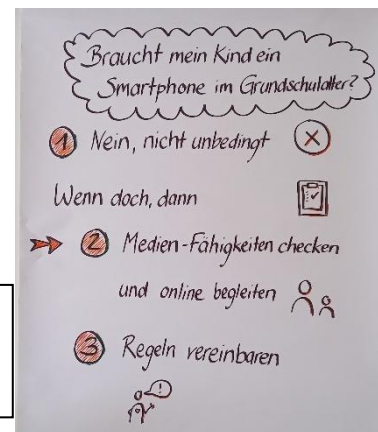 Braucht mein Kind ein
Smartphone im Grundschulalter?
1 Nein, nicht unbedingt
Wenn doch, dann
2 Medien-Fähigkeiten checken
und online begleiten
3 Regeln vereinbaren